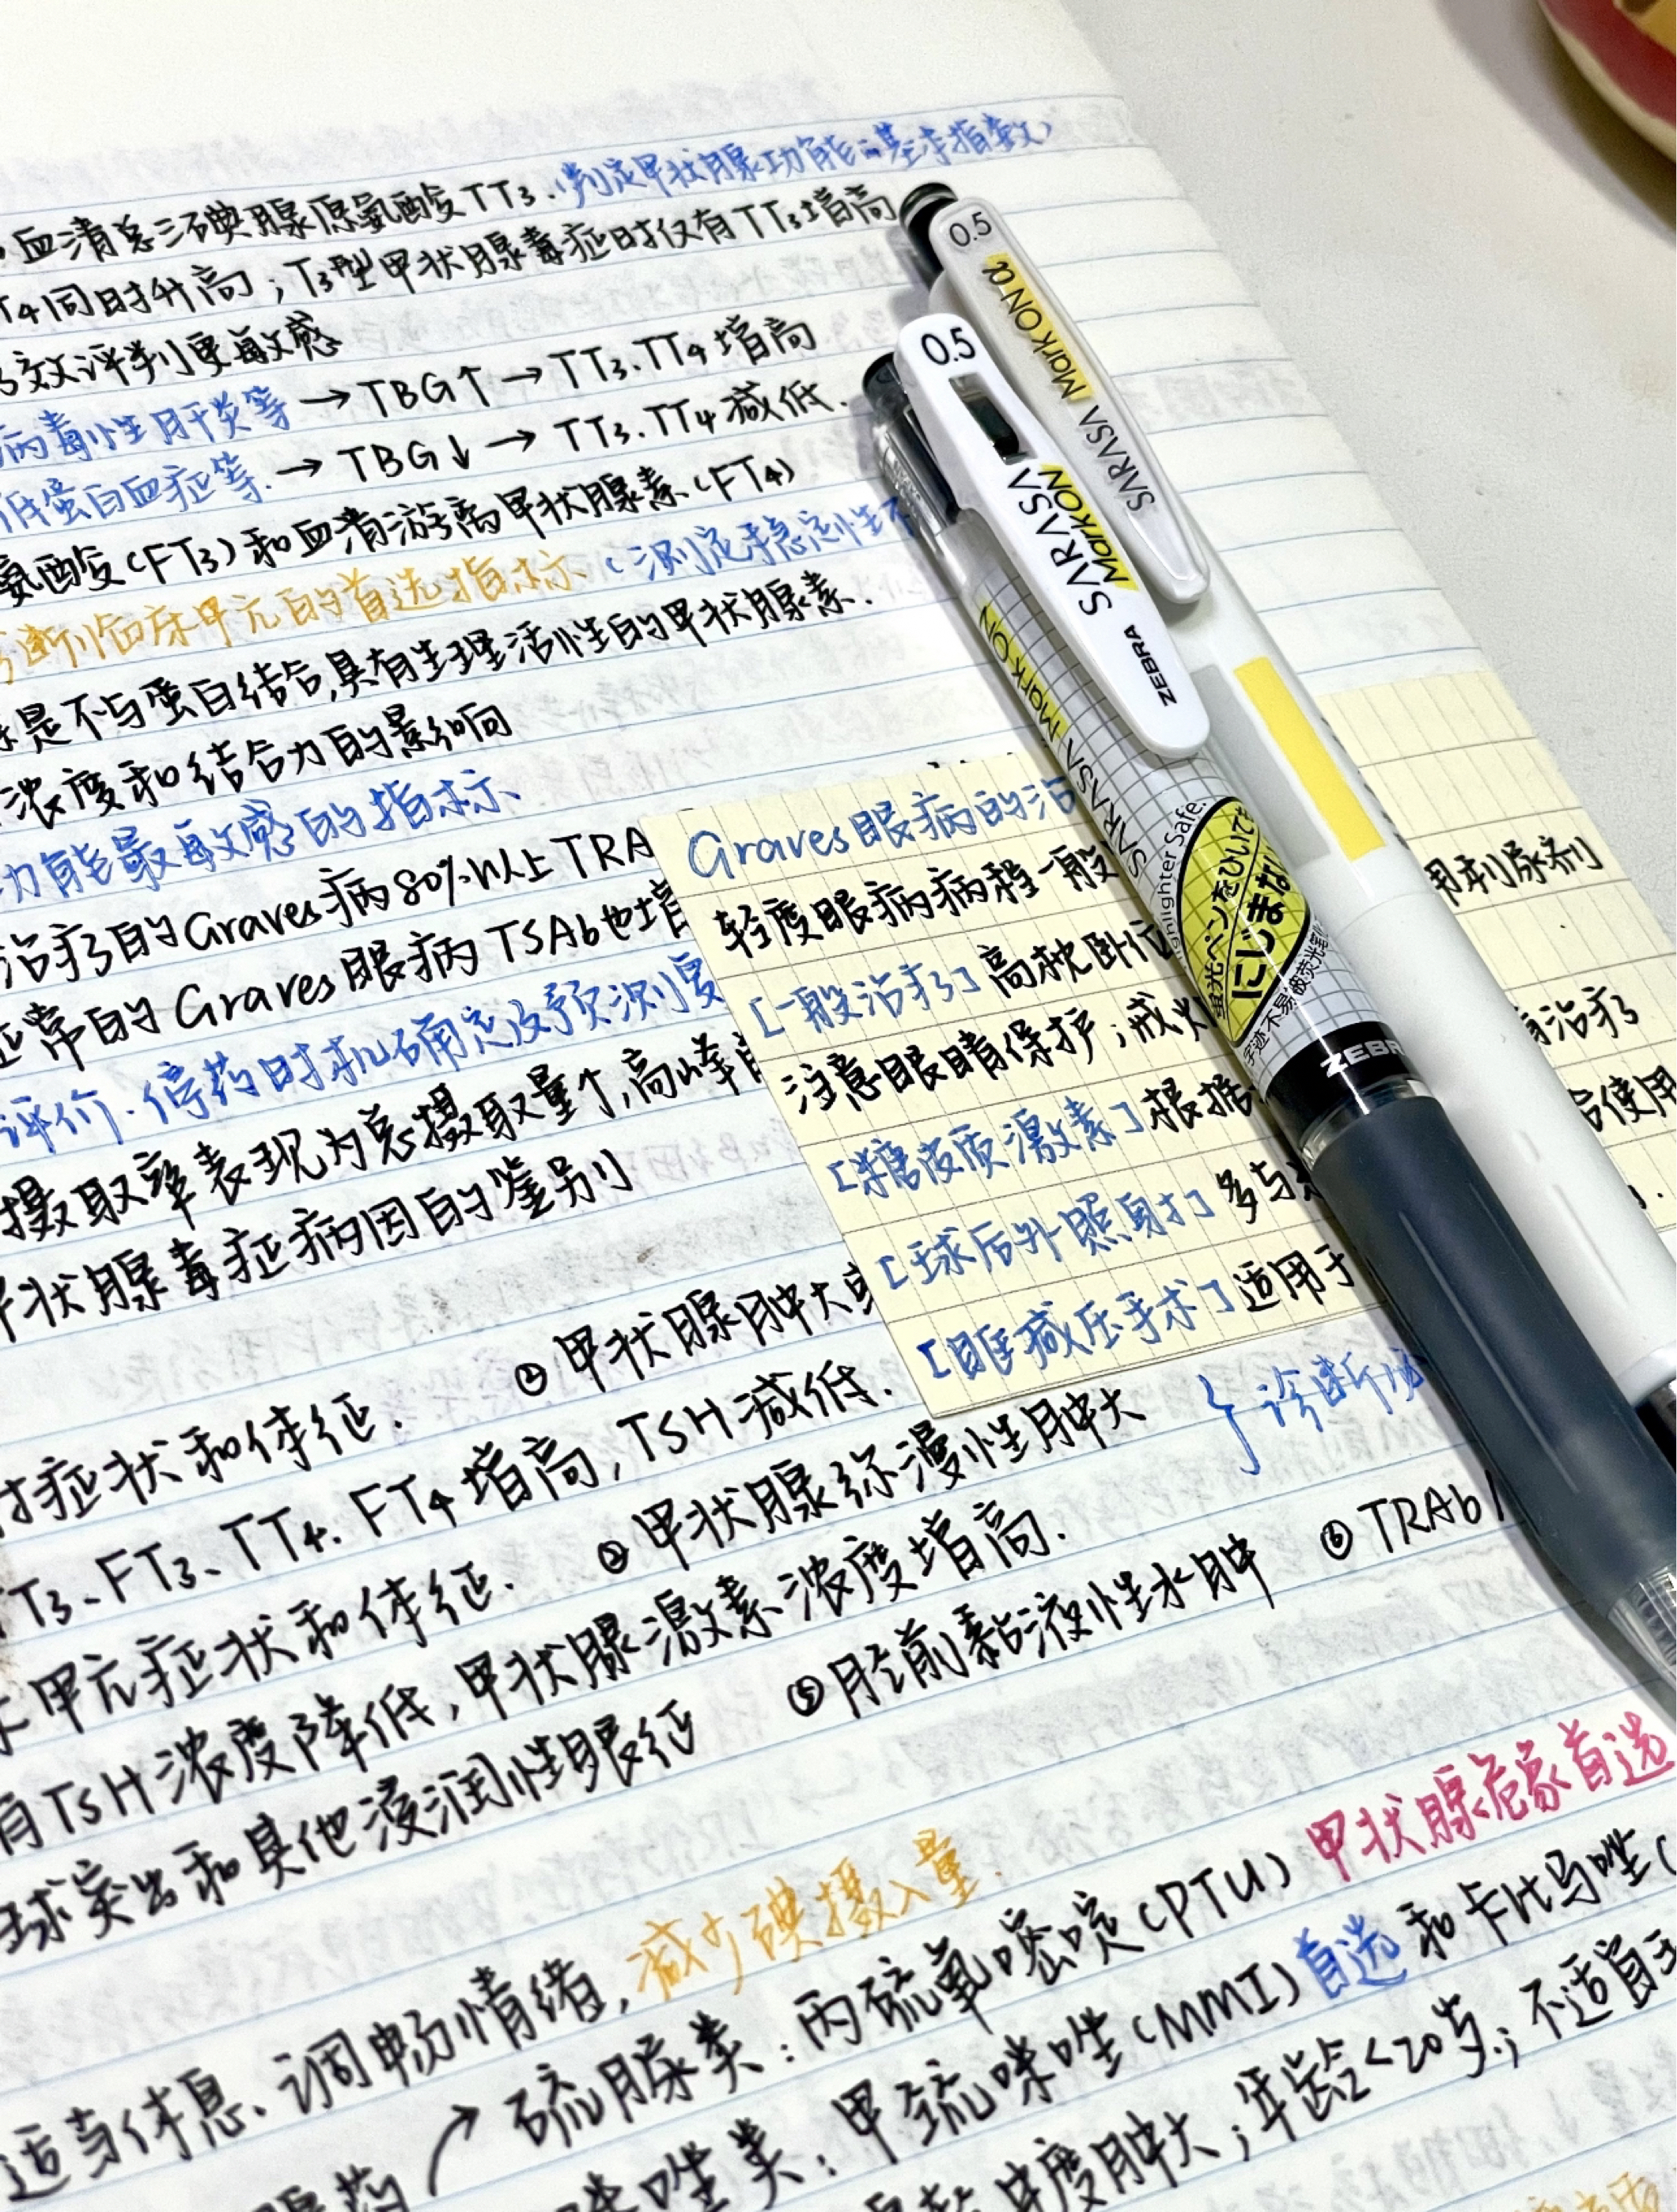 血清总三碘腺原氨酸TT3.(判定甲状腺功能的基本指数)
T4同时升高；T3型甲状腺毒症时仅有TT3增高
效评判更敏感
病毒性肝炎等→TBG↑→TT3.TT4增高
低蛋白血症等.→TBG↓→TT3.TT4减低.
氨酸(FT3)和血清游离甲状腺素(FT4)
诊断临床甲亢的首选指标.(测定稳定性不
是不与蛋白结合,具有生理活性的甲状腺素.
浓度和结合力的影响
功能最敏感的指标.
治疗的Graves病80%以上TRA
正常的Graves眼病TSAb也增
评价.停药时机确定及预测复
摄取率表现为总摄取量↑,高峰前
甲状腺毒症病因的鉴别
症状和体征. ②甲状腺肿大或
T3、FT3、TT4.FT4增高,TSH减低.
甲亢症状和体征. ②甲状腺弥漫性肿大 }诊断必
TSH浓度降低,甲状腺激素浓度增高.
球突出和其他浸润性眼征 ⑤胫前黏液性水肿 ⑥TRAb
适当休息、调畅情绪,减少碘摄入量.
药↗硫脲类:丙硫氧嘧啶(PTU)甲状腺危象首选
咪唑类:甲巯咪唑(MMI)首选和卡比马唑(
中度肿大;年龄<20岁;不适宜手
Graves眼病的治
轻度眼病病程一般
[一般治疗]高枕卧位
用利尿剂
注意眼睛保护;戒烟
[糖皮质激素]根据
治疗
[球后外照射]多与
后使用
[眶减压手术]适用于
0.5
SARASA Mark ON α
0.5
SARASA Mark ON
ZEBRA
SARASA Mark ON
Highlighter Safe.
蛍光ペンをひいても
にじまない
字迹不易被荧光笔
ZEBR